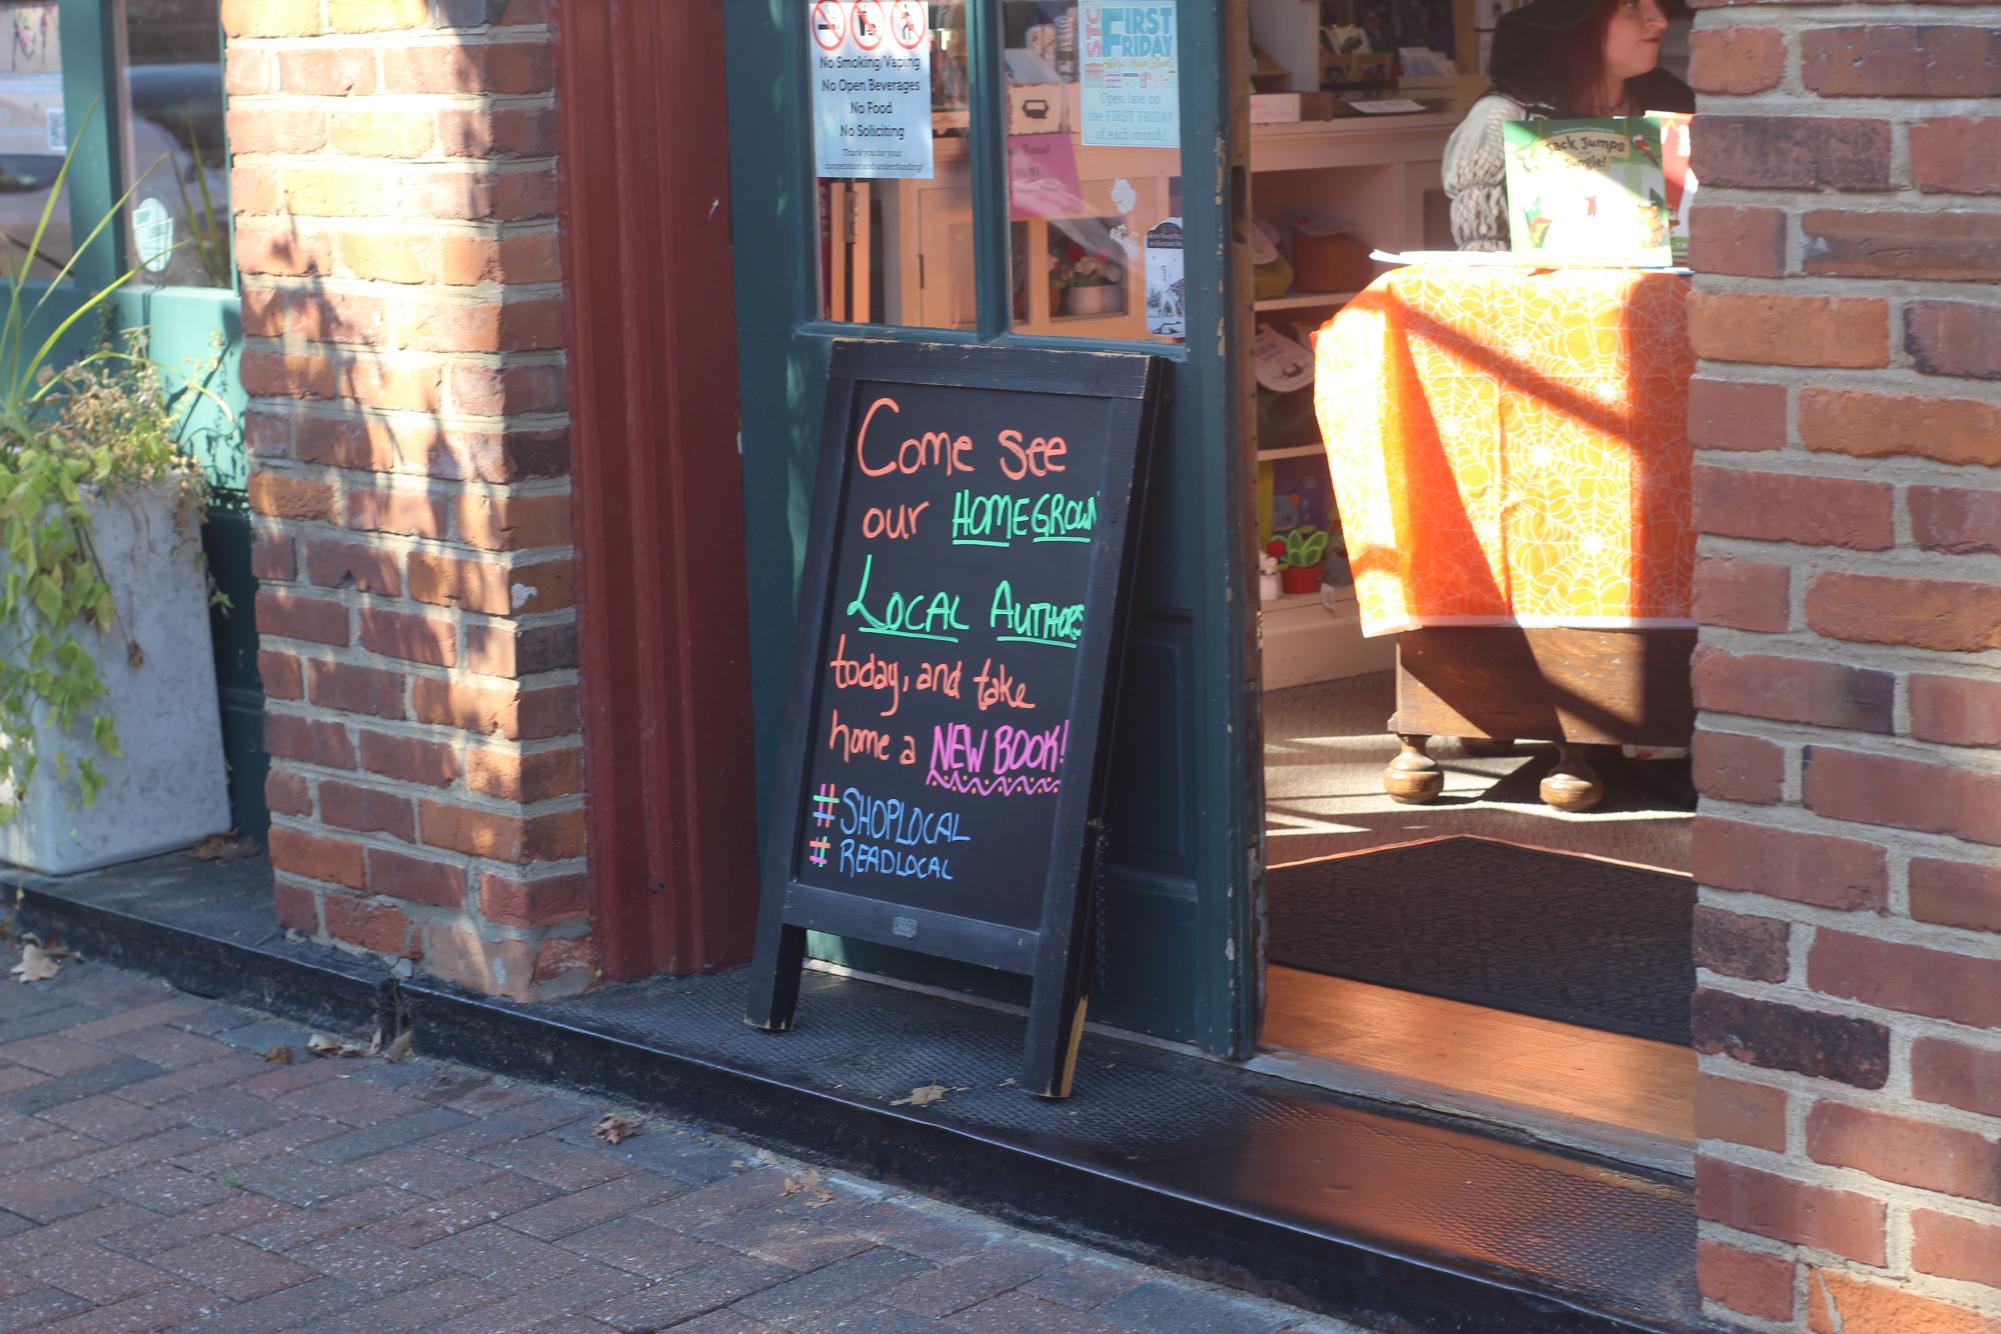 No Smoking/Vaping
No Open Beverages
No Food
No Soliciting
Thank you for your
cooperation and understanding!
STC
FIRST
FRIDAY
Open late on
the FIRST FRIDAY
of each month!
Jack Jumps
Jungle!
Come see
our HOMEGROWN
LOCAL AUTHORS
today, and take
home a NEW BOOK!
#SHOPLOCAL
#READLOCAL